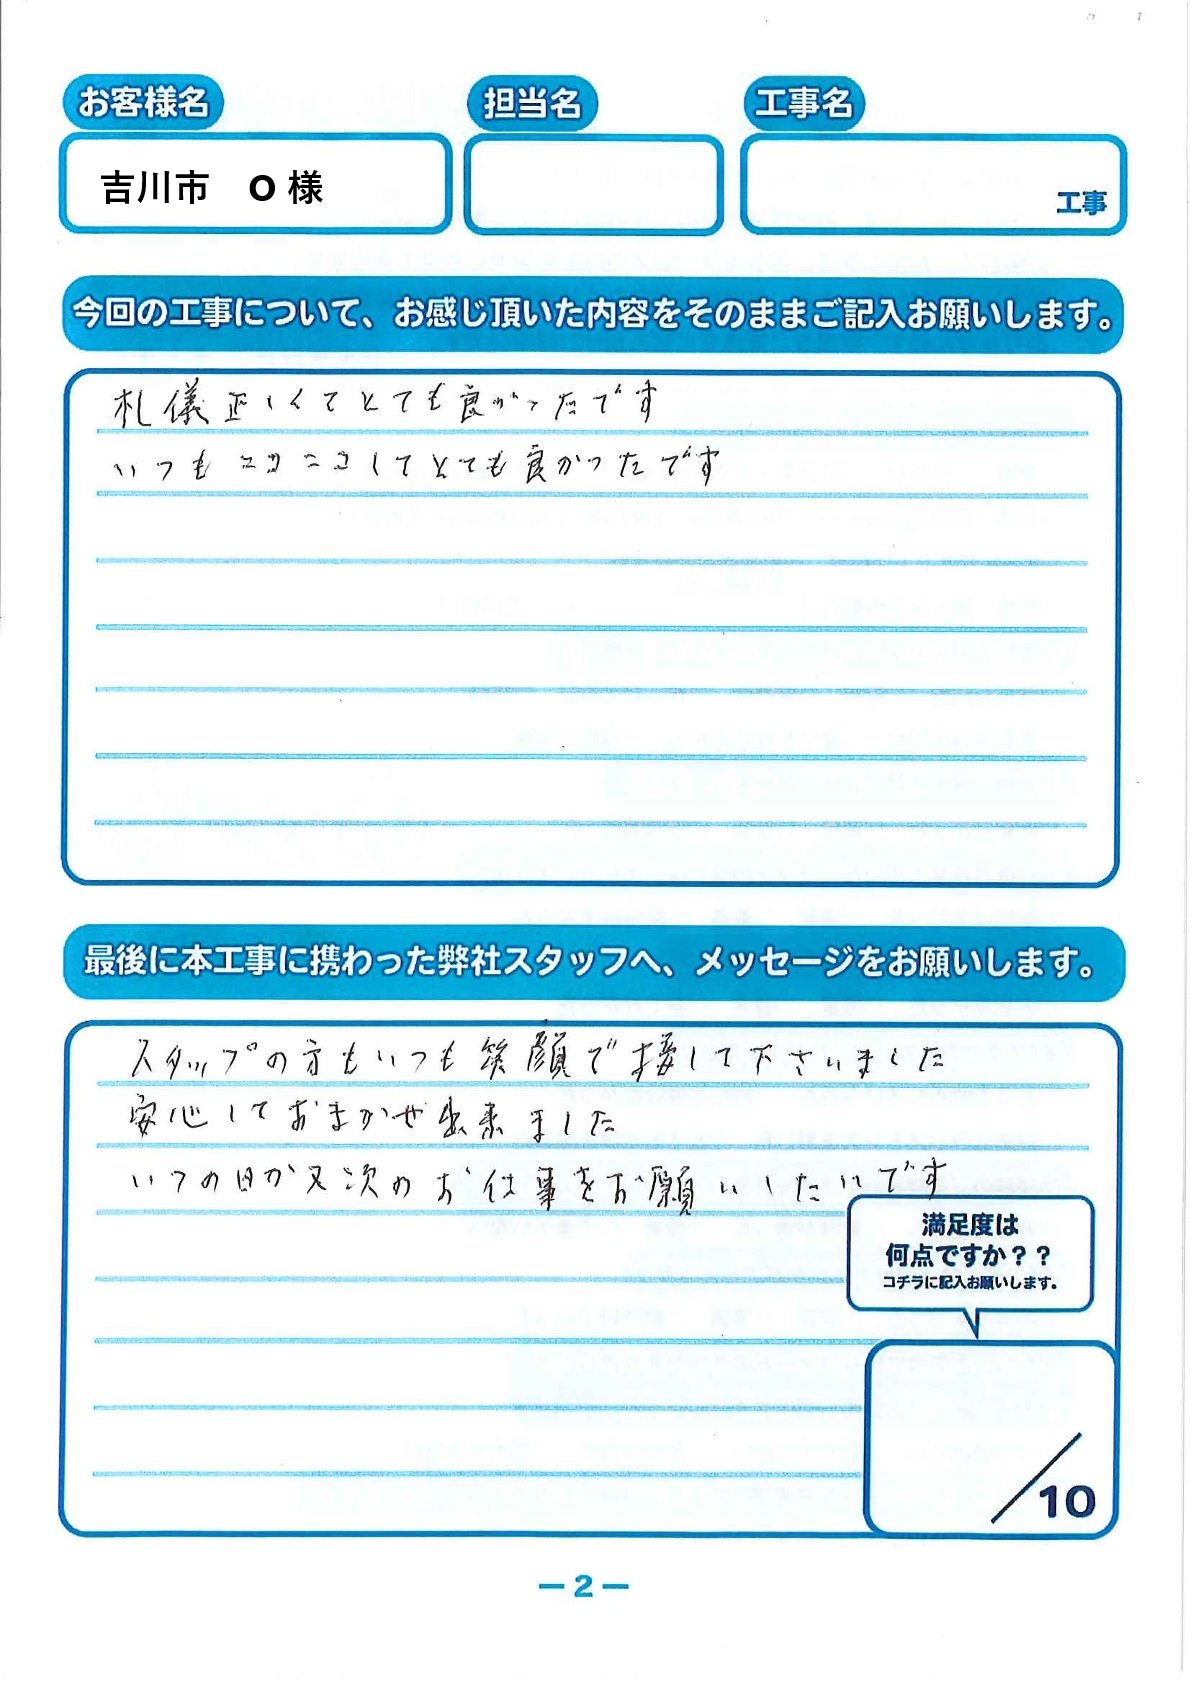 お客様名
担当名
工事名
吉川市 O 様
工事
今回の工事について、お感じ頂いた内容をそのままご記入お願いします。
礼儀正しくてとても良かったです
いつもニコニコしてとても良かったです
最後に本工事に携わった弊社スタッフへ、メッセージをお願いします。
スタップの方もいつも笑顔で接して下さいました
安心しておまかせ出来ました
いつの日か又次のお仕事をお願いしたいです
満足度は
何点ですか？？
コチラに記入お願いします。
/10
ー2ー